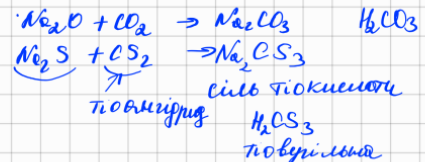 Na₂O + CO₂ → Na₂CO₃ H₂CO₃
Na₂S + CS₂ → Na₂CS₃
тіоангідрид
сіль тіокислоти
H₂CS₃
тіовугільна